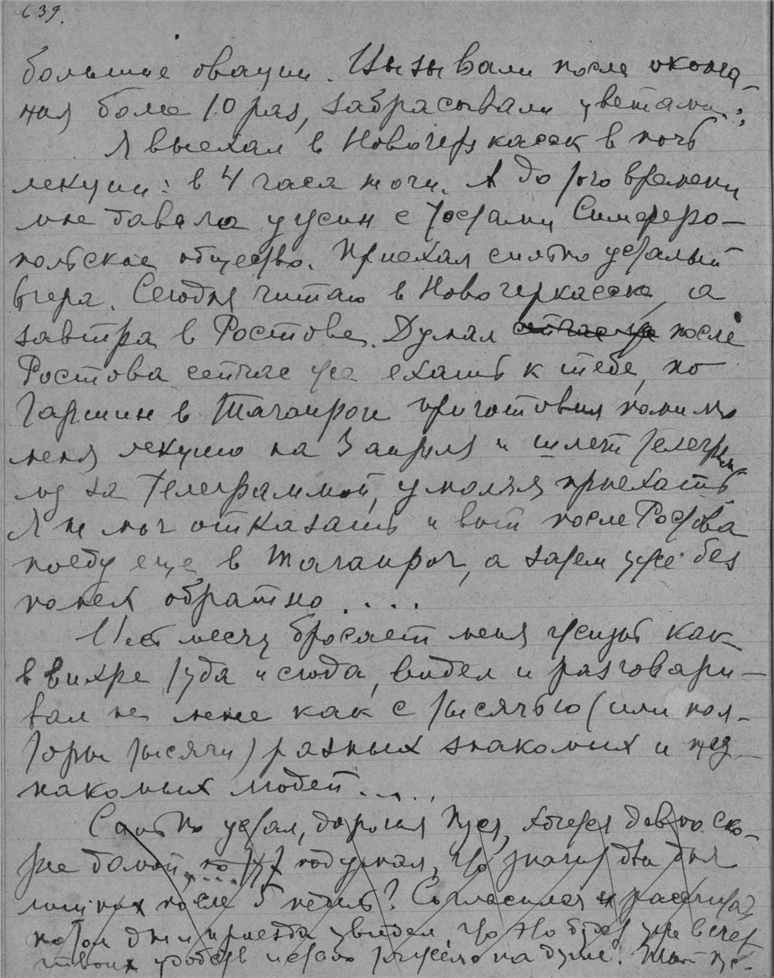 639.
большие овации. Вызывали после оконча-
ния более 10 раз, забрасывали цветами...
Я выехал в Новочеркасск в ночь
лекции: в 4 часа ночи. А до того времени
мне давало ужин с тостами Симферо-
польское общество. Приехал сильно усталый
вчера. Сегодня читаю в Новочеркасске, а
завтра в Ростове. Думал после
Ростова сейчас же ехать к тебе, но
Гаршин в Таганроге приготовил помимо
меня лекцию на 3 апреля и шлет телеграм-
му за телеграммой, умоляя приехать.
Я не мог отказать и вот после Ростова
поеду еще в Таганрог, а затем уже без
помех обратно....
месяц бросает меня жизнь как
в вихре туда и сюда, видел и разговари-
вал не менее как с тысячью (или пол-
торы тысячи) разных знакомых и нез-
накомых людей.....
Сильно устал, дорогая, хочется давно ско-
рее домой, но подумал, что значит два дня
лишних после 5 недель? Согласился и рассчитав
потом дни приезда увидел, что это будет уже в счет
твоих и стало тяжело на душе.